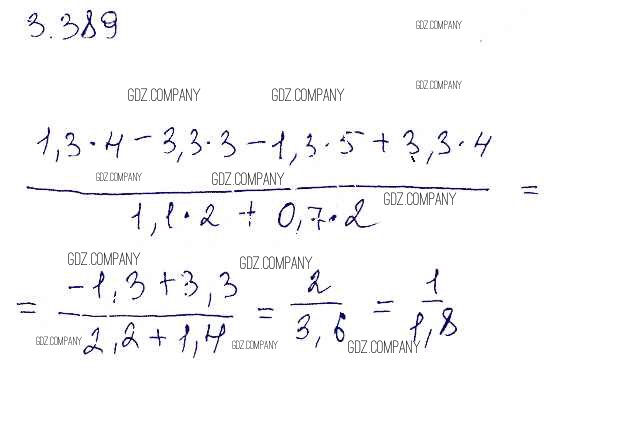 3.389
GDZ.COMPANY
GDZ.COMPANY
GDZ.COMPANY GDZ.COMPANY
1,3·4 − 3,3·3 − 1,3·5 + 3,3·4
GDZ.COMPANY GDZ.COMPANY
=
GDZ.COMPANY
1,1·2 + 0,7·2
GDZ.COMPANY GDZ.COMPANY
= −1,3 + 3,3 / 2,2 + 1,4 = 2 / 3,6 = 1 / 1,8
GDZ.COMPANY GDZ.COMPANY GDZ.COMPANY